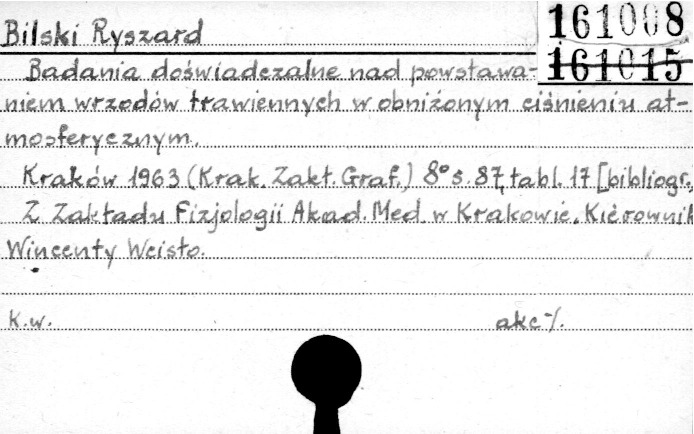 161008
Bilski Ryszard
161015
Badania doświadczalne nad powstawa-
niem wrzodów trawiennych w obniżonym ciśnieniu at-
mosferycznym.
Kraków 1963 (Krak. Zakt. Graf.) 8° s. 87, tabl. 17 [bibliogr.
Z Zaktadu Fizjologii Akad. Med. w Krakowie. Kierownik
Wincenty Wcisło.
K.w. akc %.